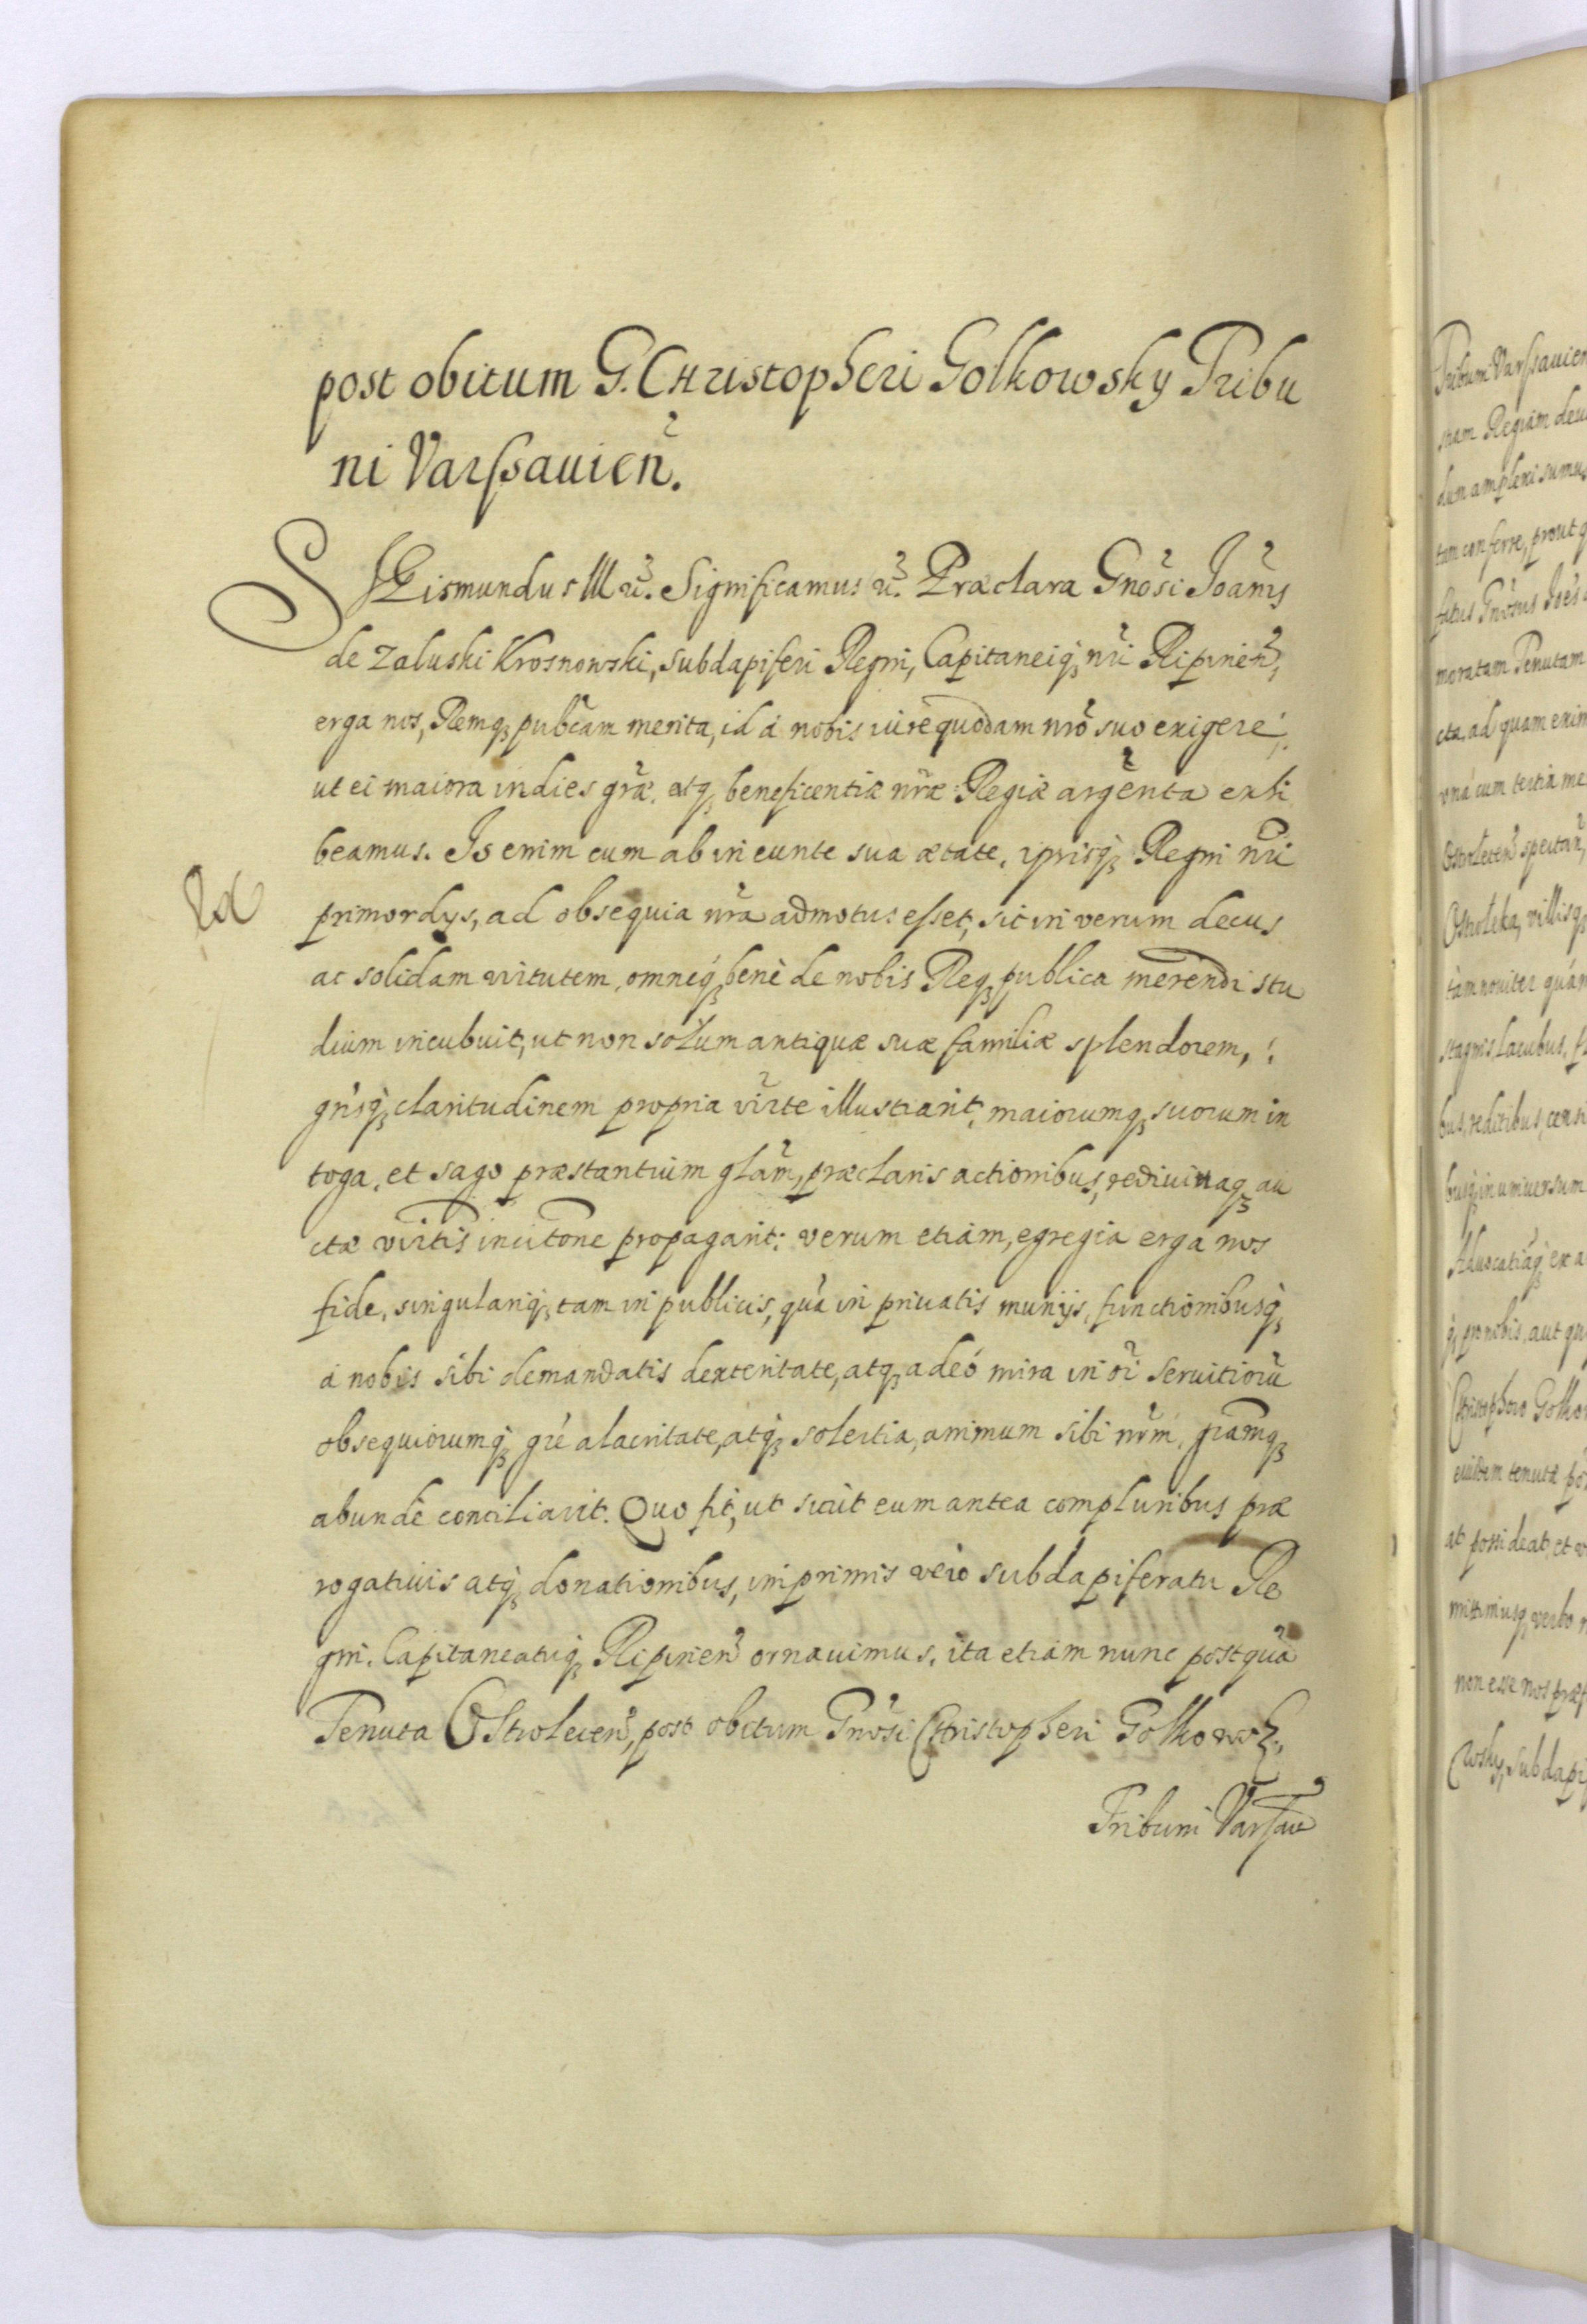 post obitum G. Christopheri Golkowsky Tribu
ni Varssauien̄.
SIGismundus III ꝛc̃. Significamus ꝛc̃. Præclara Gnõsi Joãnis
de Zaluski Krosnowski, Subdapiferi Regni, Capitaneiq̨ nr̃i Ripinen̄,
erga nos, Remq̨ pubcãm merita, id à nobis iure quodam nr̃o suo exigere,
ut ei maiora indies gr̃æ, atq̨ beneficentiæ nr̃æ Regiæ argũenta exhi
beamus. Is enim cum ab in eunte sua ætate, ipsisq̨ Regni nr̃i
primordijs, ad obsequia nr̃a admotus esset, sic in verum decus
ac solidam virtutem, omneq̨ benè de nobis Req̨ publica merendi stu
dium incubuit, ut non solùm antiquæ suæ familiæ splendorem,
gñisq̨ claritudinem propria vir̃te illustrarit, maiorumq̨ suorum in
toga, et sago præstantium glãm, præclaris actionibus, rediuiuaq̨ au
ctæ vir̃tis incitõne propagarit: verum etiam, egregia erga nos
fide, singulariq̨ tam in publicis, quã in priuatis munijs, functionibusq̨
à nobis sibi demandatis dexteritate, atq̨ adeò mira in oĩ seruitiorũ
obsequiorumq̨ gñe alacritate, atq̨ solertia, animum sibi nr̃m, gr̃amq̨
abundè conciliarit. Quo fit, ut sicut eum antea compluribus præ
rogatiuis atq̨ donationibus, imprimis vero subdapiferatu Re
gni, Capitaneatuq̨ Ripinen̄ ornauimus, ita etiam nunc postquã
Tenuta Ostrolecen̄, post obitum Gnõsi Christopheri Golkowsk.,
Tribuni Varsau
Tribuni Varssauien
ctam Regiam deu
dum amplexi sumus
tam conferre, prout q
fatus Gnõsus Joẽs
moratam Tenutam
cta, ad quam exim
vnà cum tertia me
Ostrolecen̄ spectan̄,
Ostroleka, villisq̨
tàm nouiter quàm
stagnis, lacubus, f
bus, reditibus, censi
busq̨ in uniuersum
Aduocatiaq̨ ex a
q̨ pro nobis, aut qu
Christophoro Golko
eiusdem tenutæ
at possideat, et
mittimusq̨ verbo n
non esse nos præf
wsky, Subdapi